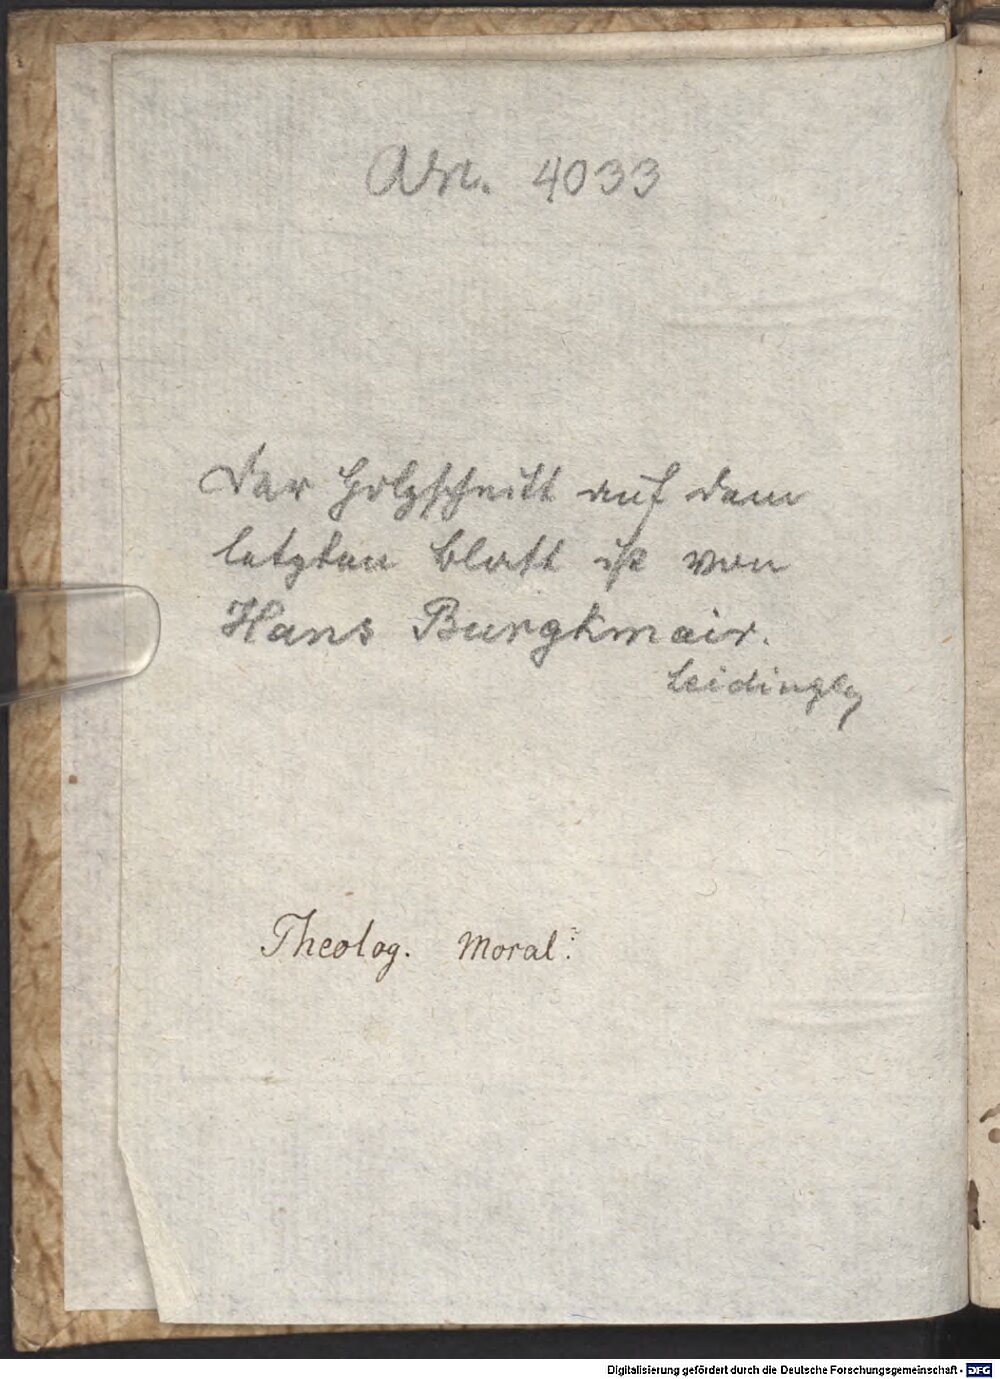 Den. 4033
Der Holzschnitt auf dem
letzten Blatt ist von
Hans Burgkmair.
Leidinger
Theolog. Moral:
Digitalisierung gefördert durch die Deutsche Forschungsgemeinschaft - DFG